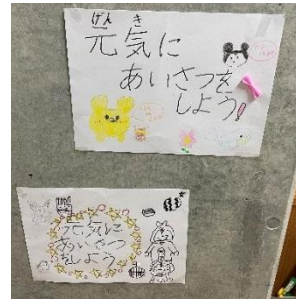 げん き
元気に
あいさつを
しよう!
元気に
あいさつ
をしよう